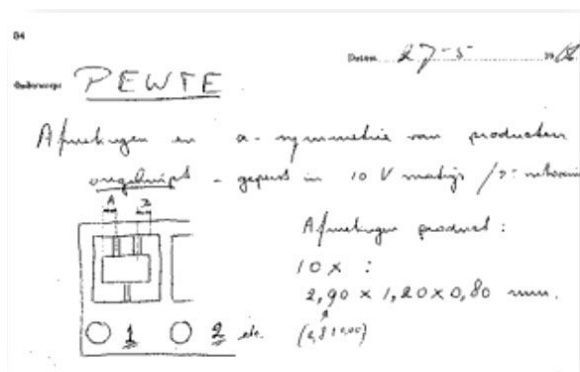 84
Datum 27-5
Onderwerp: PEWTE
Afmetingen en a-symmetrie van producten
ongeknipt - geperst in 10 V matrijs
A
Afmetingen product:
10 x :
2,90 x 1,20 x 0,80 mm.
1 2 etc.